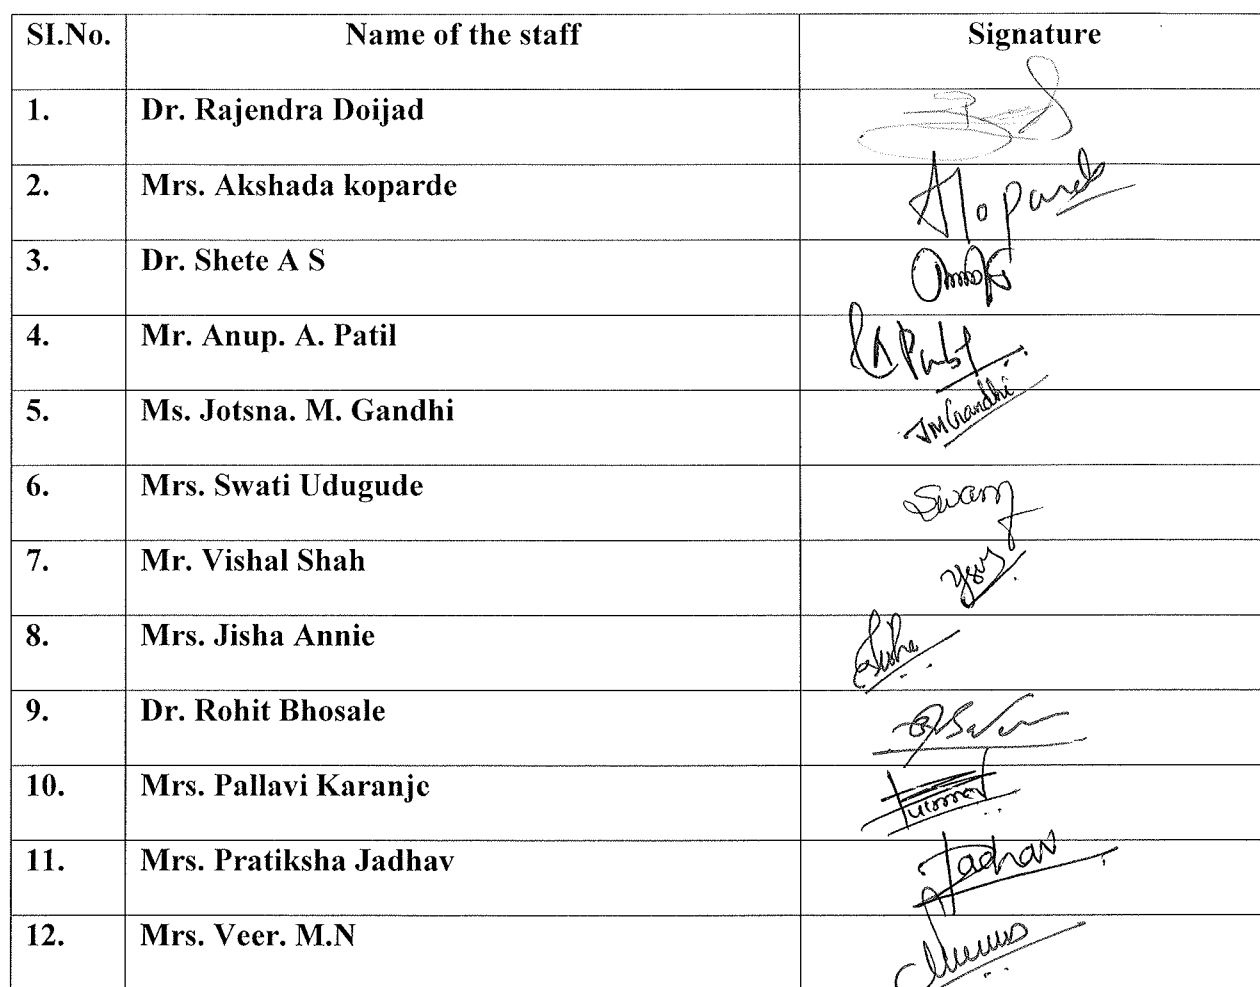 SI.No. Name of the staff Signature
1. Dr. Rajendra Doijad
2. Mrs. Akshada koparde
3. Dr. Shete A S
4. Mr. Anup. A. Patil
5. Ms. Jotsna. M. Gandhi JMGandhi
6. Mrs. Swati Udugude
7. Mr. Vishal Shah
8. Mrs. Jisha Annie
9. Dr. Rohit Bhosale
10. Mrs. Pallavi Karanje
11. Mrs. Pratiksha Jadhav Jadhav
12. Mrs. Veer. M.N